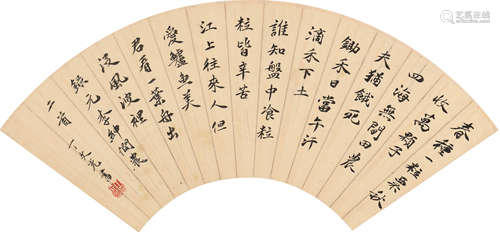 春種一粒粟秋
收萬顆子
四海無閒田農
夫猶餓死
鋤禾日當午汗
滴禾下土
誰知盤中飡粒
粒皆辛苦
江上往來人但
愛鱸魚美
君看一葉舟出
沒風波裡
錄元李紳憫農
二首